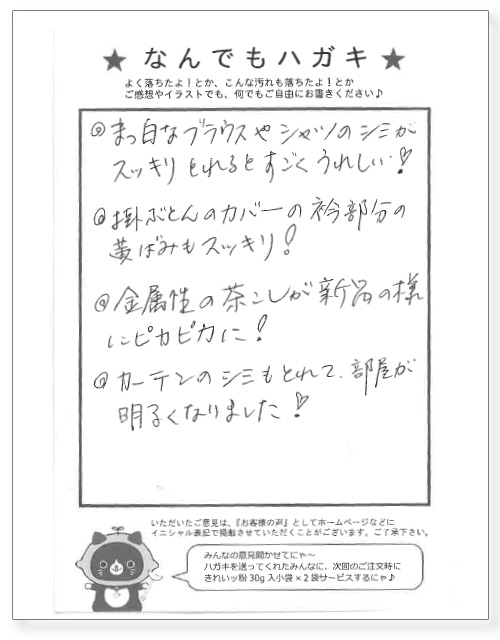 ★ なんでもハガキ ★
よく落ちたよ!とか、こんな汚れも落ちたよ!とか
ご感想やイラストでも、何でもご自由にお書きください♪
◎まっ白なブラウスやシャツのシミが
スッキリとれるとすごくうれしい!
◎掛ぶとんのカバーの衿部分の
黄ばみもスッキリ!
◎金属性の茶こしが新品の様
にピカピカに!
◎カーテンのシミもとれて、部屋が
明るくなりました!
いただいたご意見は、『お客様の声』としてホームページなどに
イニシャル表記で掲載させていただくことがございます。ご了承下さい。
みんなの意見聞かせてにゃ〜
ハガキを送ってくれたみんなに、次回のご注文時に
きれいッ粉30g入小袋×2袋サービスするにゃ♪